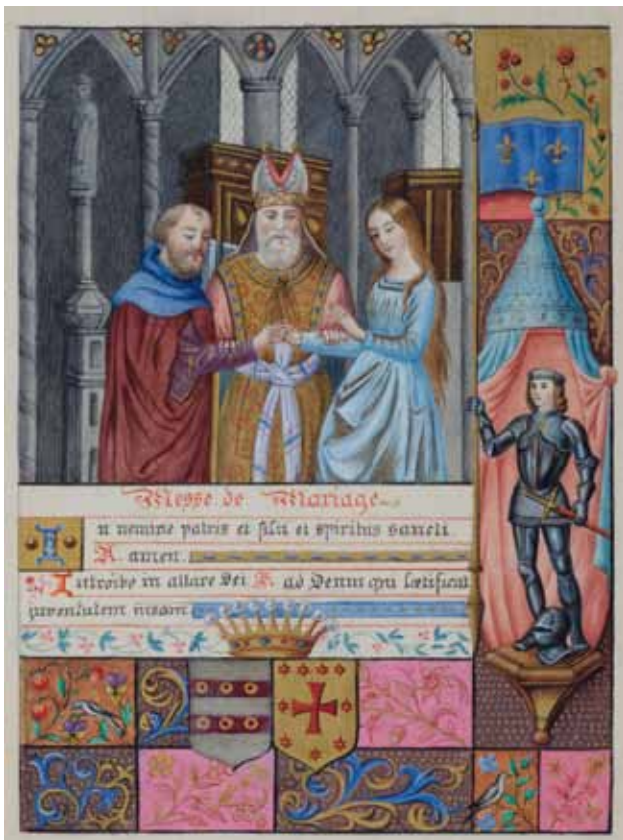 Messe de Mariage
In nomine patris et filii et spiritus sancti
R. amen.
Introibo in altare Dei R. ad Deum qui lætificat
juventutem meam